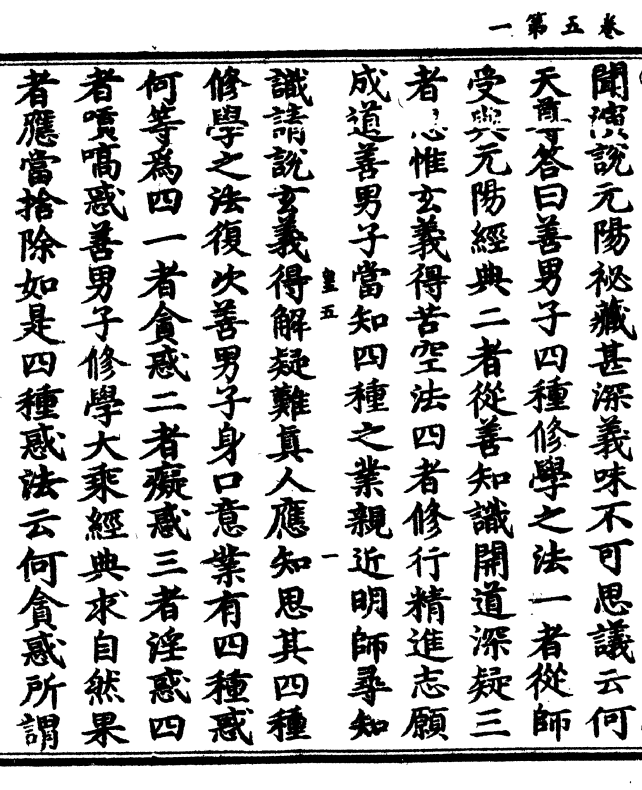 卷五第一
聞演說元陽祕藏甚深義味不可思議云何
天尊答曰善男子四種修學之法一者從師
受與元陽經典二者從善知識開道深疑三
者思惟玄義得苦空法四者修行精進志願
成道善男子當知四種之業親近明師尋知
皇五 一
識請說玄義得解疑難真人應知思其四種
修學之法復次善男子身口意業有四種惑
何等為四一者貪惑二者癡惑三者淫惑四
者嗔嗃惑善男子修學大乘經典求自然果
者應當捨除如是四種惑法云何貪惑所謂